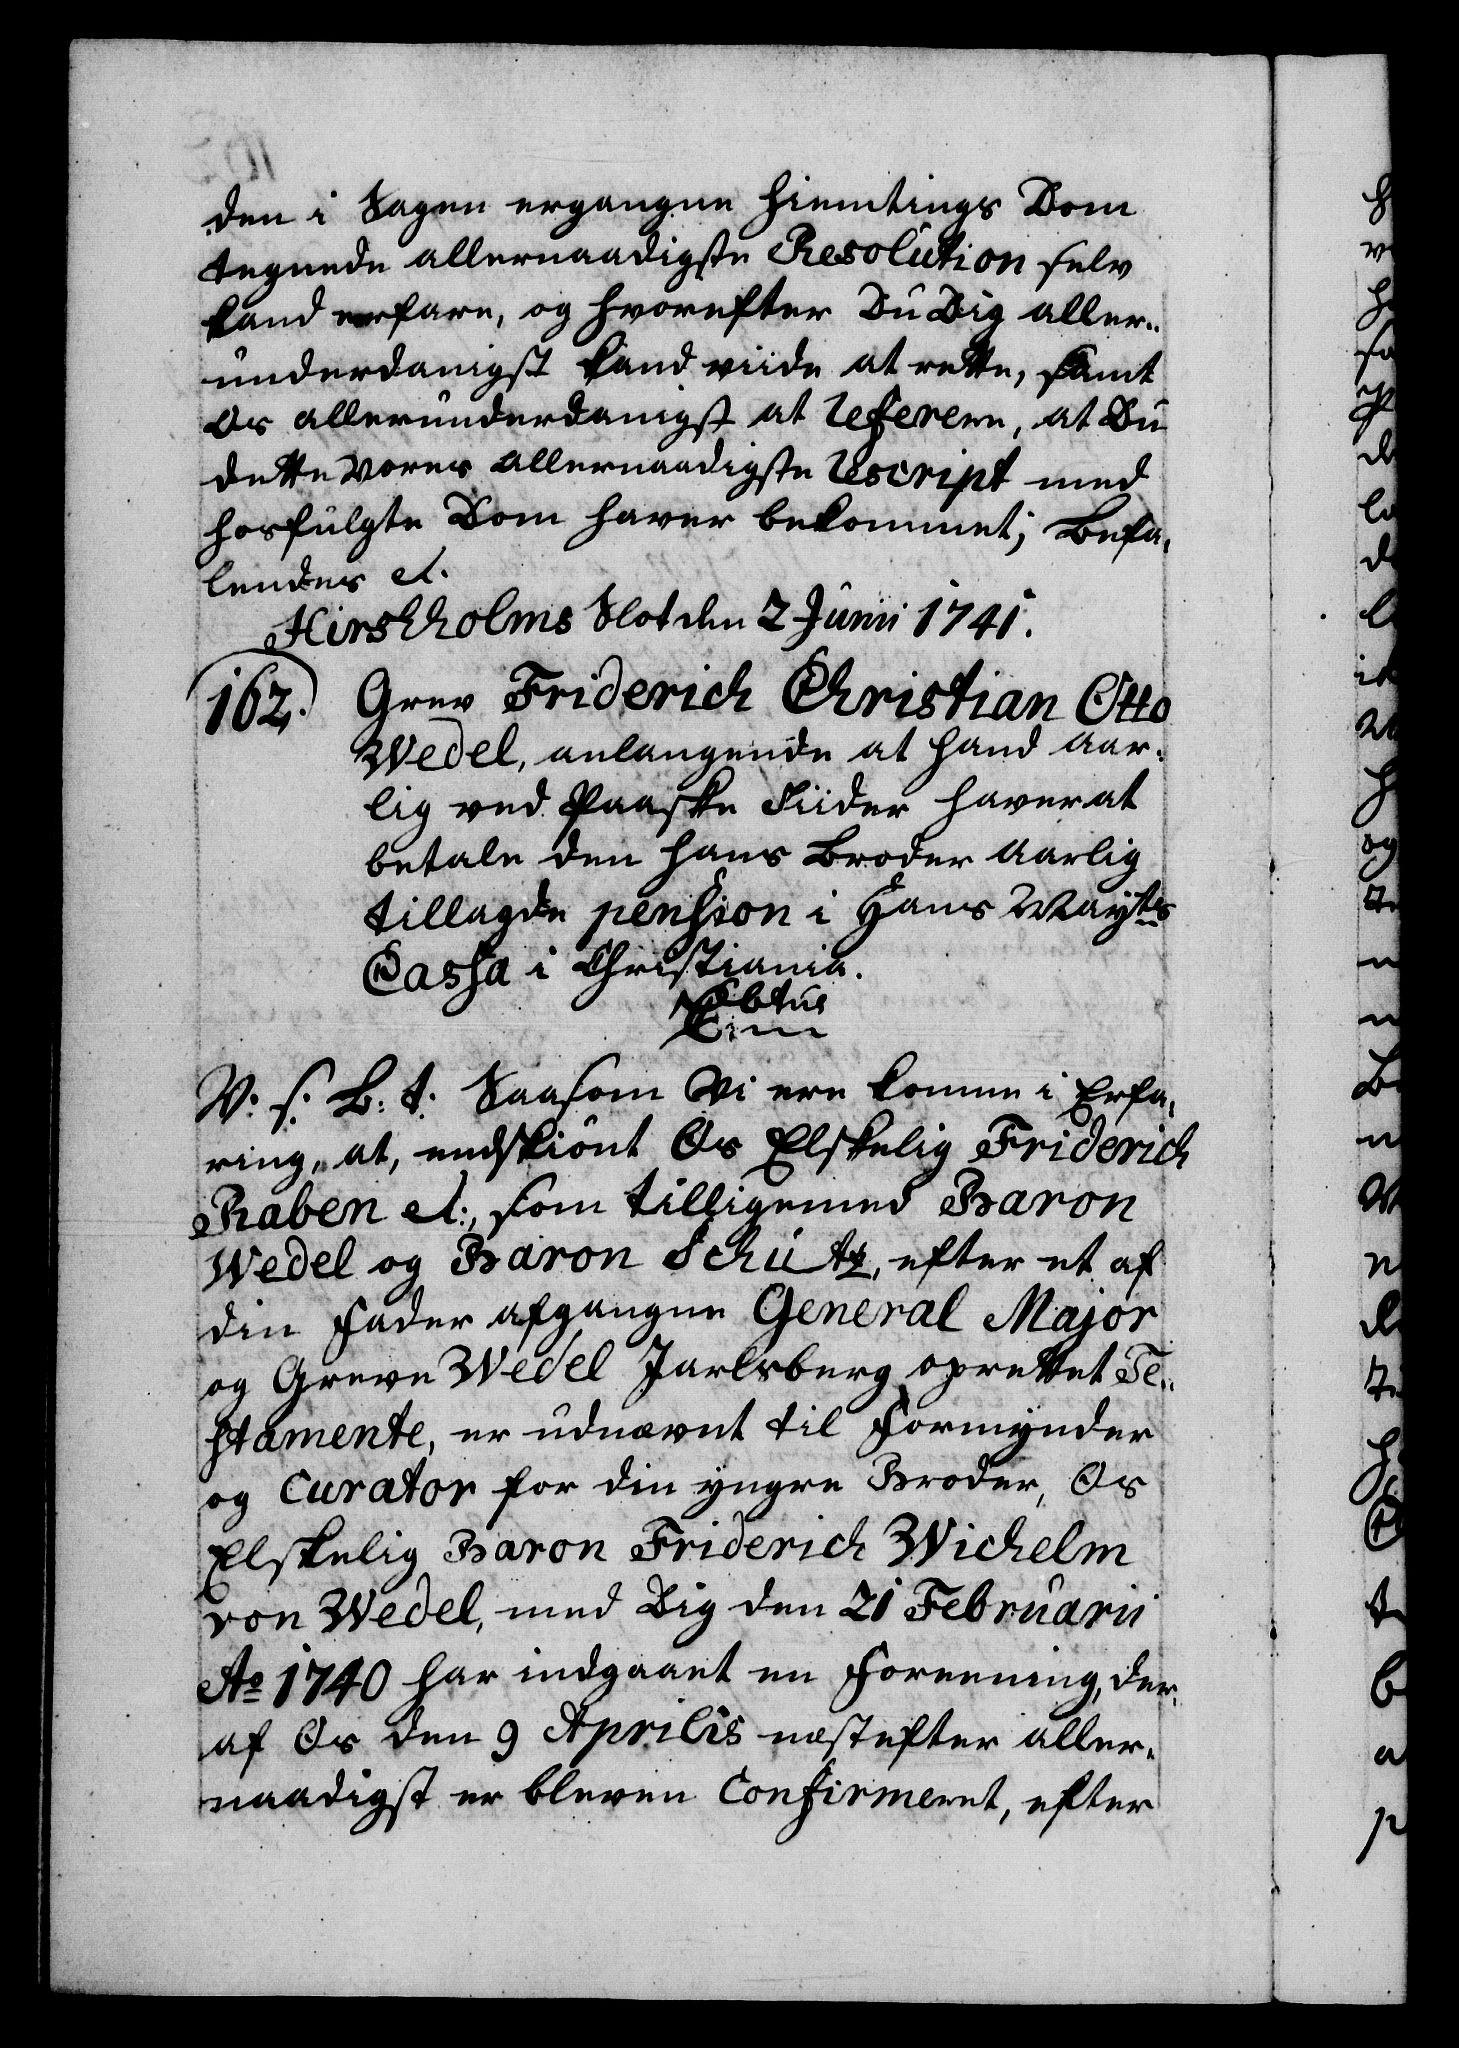 den i Sagen ergangne Hiemtings Dom
tegnede allernaadigste Resolution selv
kand erfare, og hvorefter Du Dig aller¬
underdanigst kand viide at rette, samt
Os allerunderdanigst at referere, at Du
dette Vores allernaadigste rescript med
hosfulgte Dom haver bekommet; Befa¬
lendes etc.
Hirshholms Slot den 2 Junii 1741.
162. Grev Friderich Christian Otto
Wedel, anlangende at hand aar¬
lig ved Paaske Tiider haver at
betale den hans Broder aarlig
tillagde pension i Hans Mayts
Cassa i Christiania.
V. s. B. t. Saasom Vi ere komne i Erfa¬
ring, at, endskiønt Os Elskelig Friderich
Raben etc:, som tilligemed Baron
Wedel og Baron Schütz, efter et af
din Fader afgangne General Major
og Greve Wedel Jarlsberg oprettet Te¬
stamente, er udnævnt til Formynder
og Curator for din yngre Broder, Os
Elskelig Baron Friderich Wichelm
von Wedel, med Dig den 21 Februarii
Ao 1740 har indgaaet en Foreening, der¬
af Os den 9 Aprilis næstefter aller¬
naadigst er bleven Confirmeret, efter